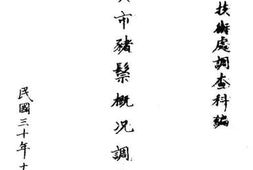 技術處調查科編
市豬鬃概況調
民國三十年十